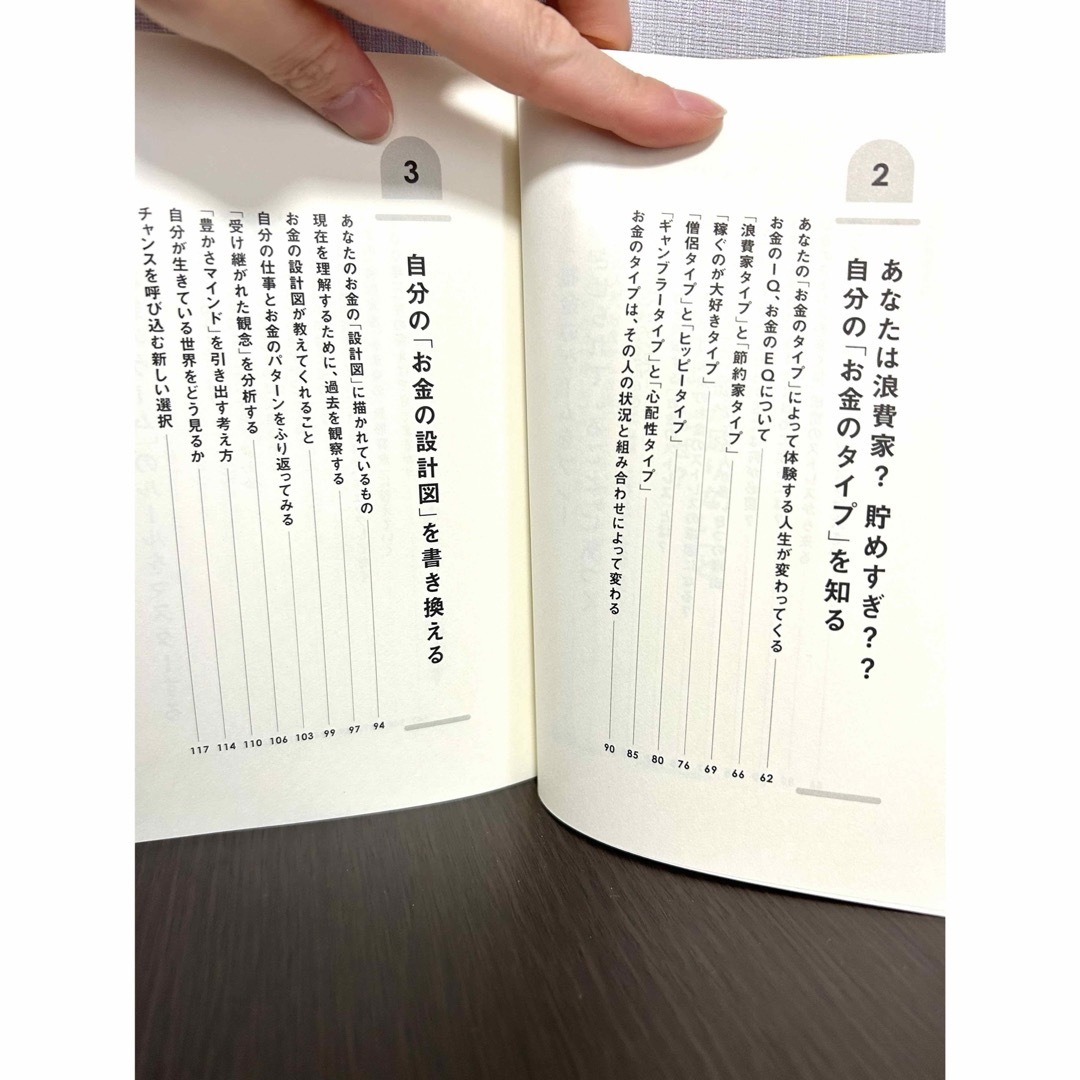 2
あなたは浪費家？ 貯めすぎ？？
自分の「お金のタイプ」を知る
あなたの「お金のタイプ」によって体験する人生が変わってくる 62
お金のIQ、お金のEQについて 66
「浪費家タイプ」と「節約家タイプ」 69
「稼ぐのが大好きタイプ」 76
「僧侶タイプ」と「ヒッピータイプ」 80
「ギャンブラータイプ」と「心配性タイプ」 85
お金のタイプは、その人の状況と組み合わせによって変わる 90
3
自分の「お金の設計図」を書き換える
あなたのお金の「設計図」に描かれているもの 94
現在を理解するために、過去を観察する 97
お金の設計図が教えてくれること 99
自分の仕事とお金のパターンをふり返ってみる 103
「受け継がれた観念」を分析する 106
「豊かさマインド」を引き出す考え方 110
自分が生きている世界をどう見るか 114
チャンスを呼び込む新しい選択 117